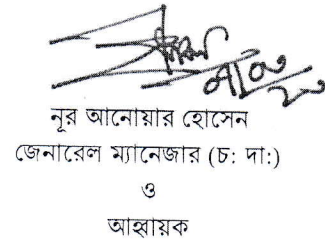 নূর আনোয়ার হোসেন
জেনারেল ম্যানেজার (চ: দা:)
ও
আহ্বায়ক